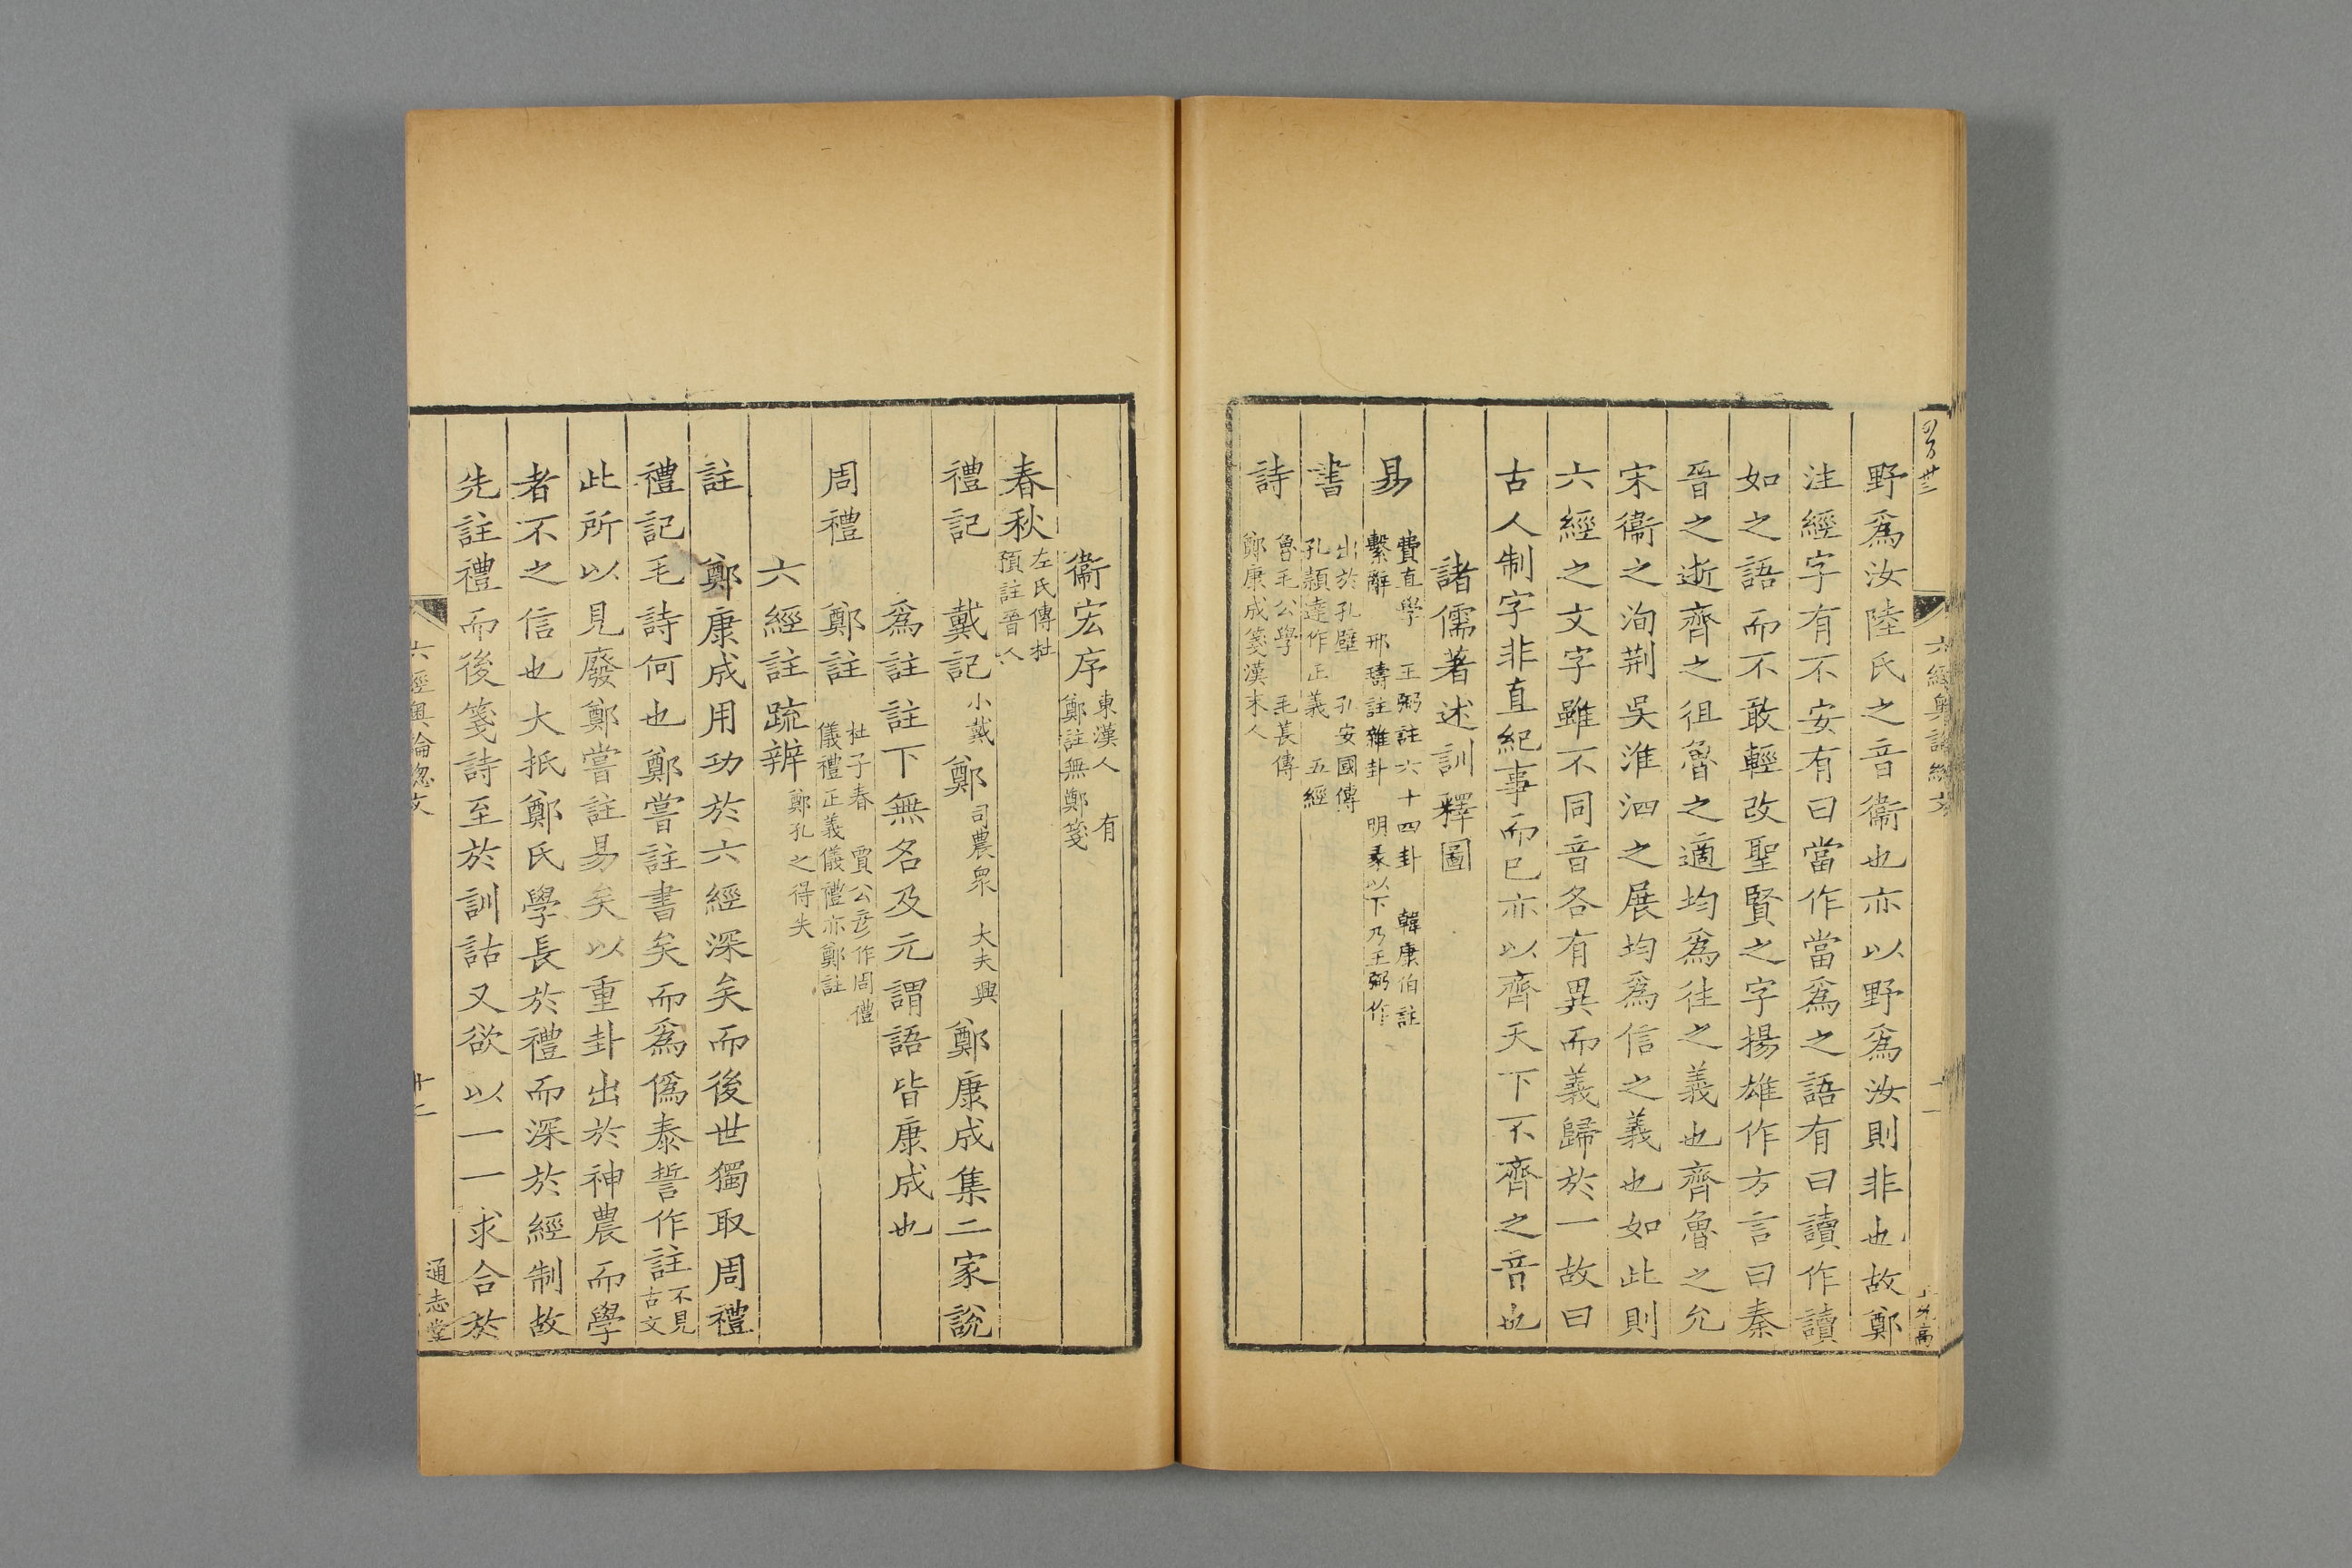 野爲汝陸氏之音衞也亦以野爲汝則非也故鄭
注經字有不安有曰當作當爲之語有曰讀作讀
如之語而不敢輕改聖賢之字揚雄作方言曰秦
晉之逝齊之徂魯之適均爲徃之義也齊魯之允
宋衞之洵荆吳淮泗之展均爲信之義也如此則
六經之文字雖不同音各有異而義歸於一故曰
古人制字非直紀事而已亦以齊天下不齊之音也
諸儒著述訓釋圖
易 費直學 王弼註六十四卦 韓康伯註
繫辭 邢璹註雜卦 明彖以下乃王弼作
書 出於孔壁 孔安國傳
孔頴達作正義 五經
詩 魯毛公學 毛萇傳
鄭康成箋漢末人
六經奥論總文
衞宏序 東漢人 有
鄭註無鄭箋
春秋 左氏傳杜
預註晉人
禮記 戴記 小戴 鄭 司農衆 大夫興 鄭康成集二家說
爲註註下無名及元謂語皆康成也
周禮 鄭註 杜子春 賈公彦作周禮
儀禮正義儀禮亦鄭註
六經註疏辨 鄭孔之得失
註 鄭康成用功於六經深矣而後世獨取周禮
禮記毛詩何也鄭嘗註書矣而爲僞泰誓作註 不見
古文
此所以見廢鄭嘗註易矣以重卦出於神農而學
者不之信也大抵鄭氏學長於禮而深於經制故
先註禮而後箋詩至於訓詁又欲以一一求合於
六經奥論總文
十二
通志堂